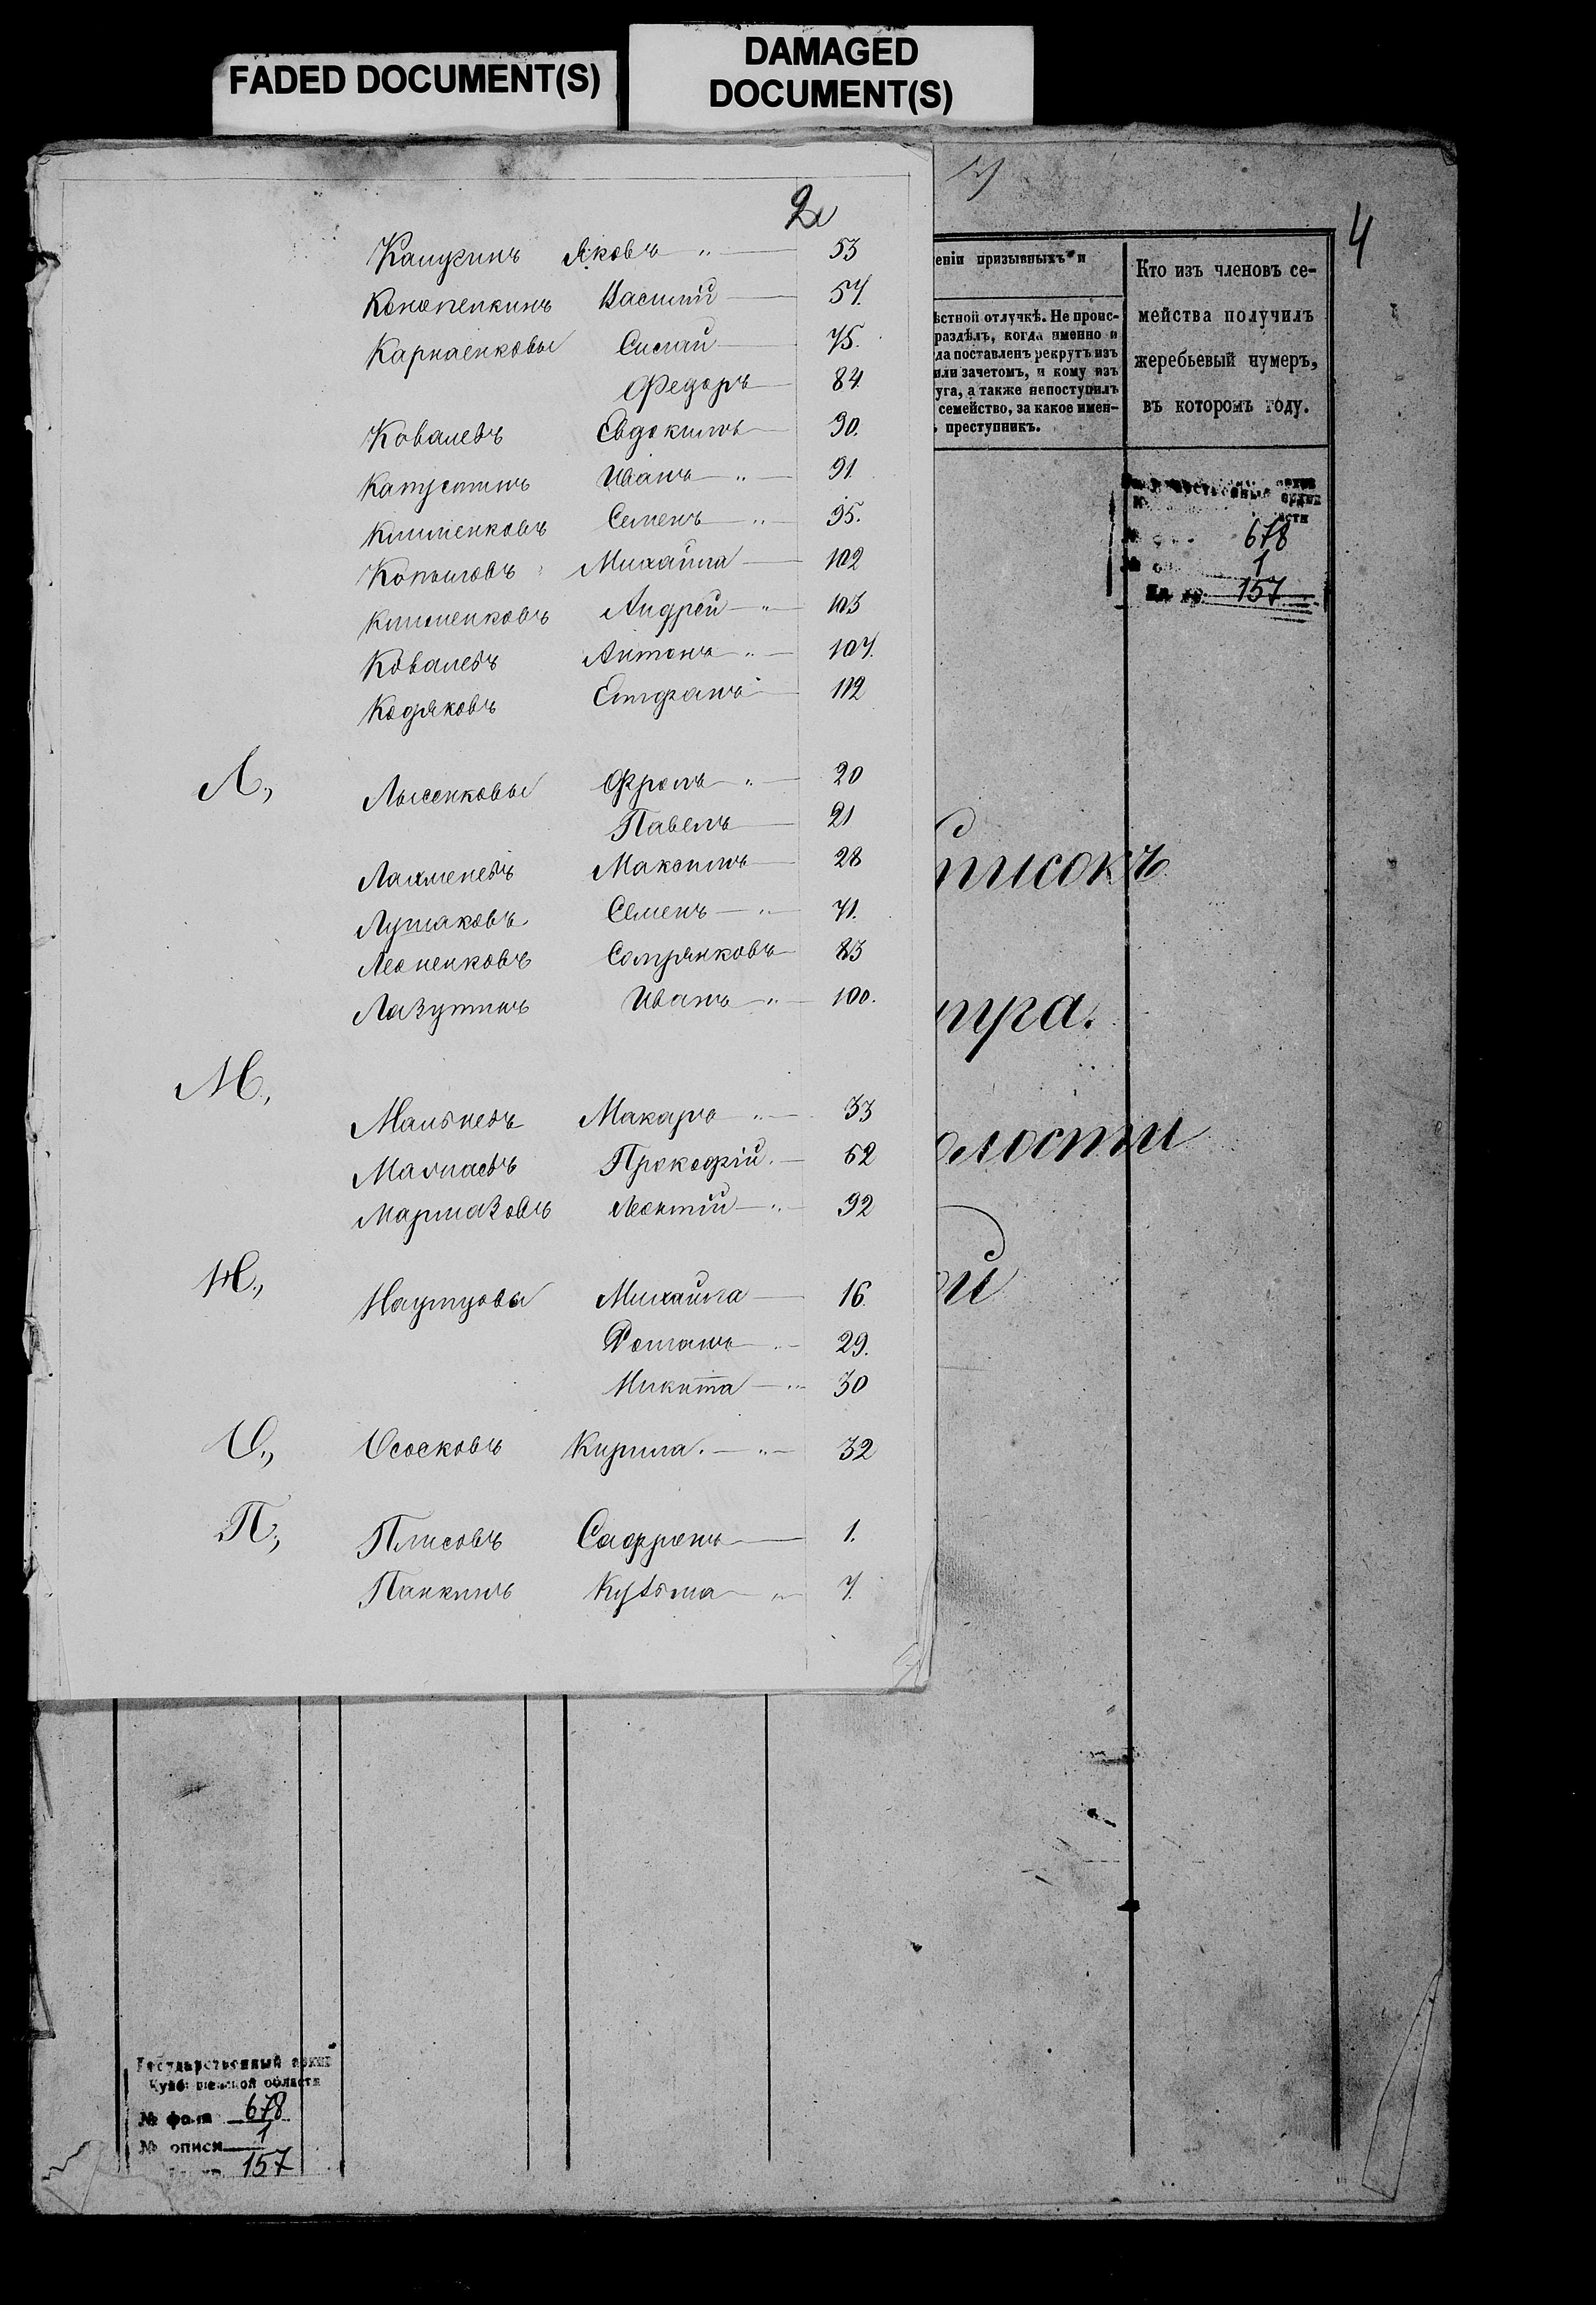 FADED DOCUMENT(S)
DAMAGED
DOCUMENT(S)
2
4
Кацукинъ Яковъ „ 53
Конопелкинъ Василій 57.
Карнаенковы Силай 75.
Федоръ 84
Ковалевъ Евдокимъ 90.
Капустинъ Иванъ „ 91.
Клименковъ Семенъ „ 95.
Копыловъ Михайла 102
Клименковъ Андрей „ 103
Ковалевъ Антонъ „ 107.
Кодяковъ Епифанъ 112
Л.,
Лысенковы Фролъ „ 20
Павелъ 21
Лахменевъ Максимъ 28
Лушаковъ Семенъ „ 71.
Леоненковъ 83
Лазутинъ Иванъ „ 100.
М.,
Мальневъ Макаръ „ 33
Малчаевъ Прокофій. 52
Мармазовъ Леонтій „ 92
Н.,
Наумовы Михайла 16.
Романъ „ 29.
Никита „ 30
О.,
Ососковъ Кирила. „ 32
П.,
Плисовъ Сафронъ 1.
Панкинъ Кузьма „ 7.
еніи призывныхъ и
ѣстной отлучкѣ. Не проис-
раздѣлъ, когда именно и
да поставленъ рекрутъ изъ
или зачетомъ, и кому изъ
уга, а также непоступилъ
семейство, за какое имен-
ъ преступникъ.
Кто изъ членовъ се-
мейства получилъ
жеребьевый нумеръ,
въ которомъ году.
678
1
157
писокъ
тра.
олости
ой
Государственный архив
Куйбышевской области
№ фонда 678
№ описи 1
157